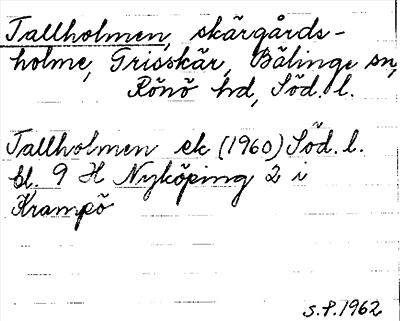 Tallholmen, skärgårds-
holme, Grisskär, Bälinge sn,
Rönö hd, Söd. l.
Tallholmen ek (1960) Söd. l.
bl. 9 H Nyköping 2 i
Krampö
S.P. 1962